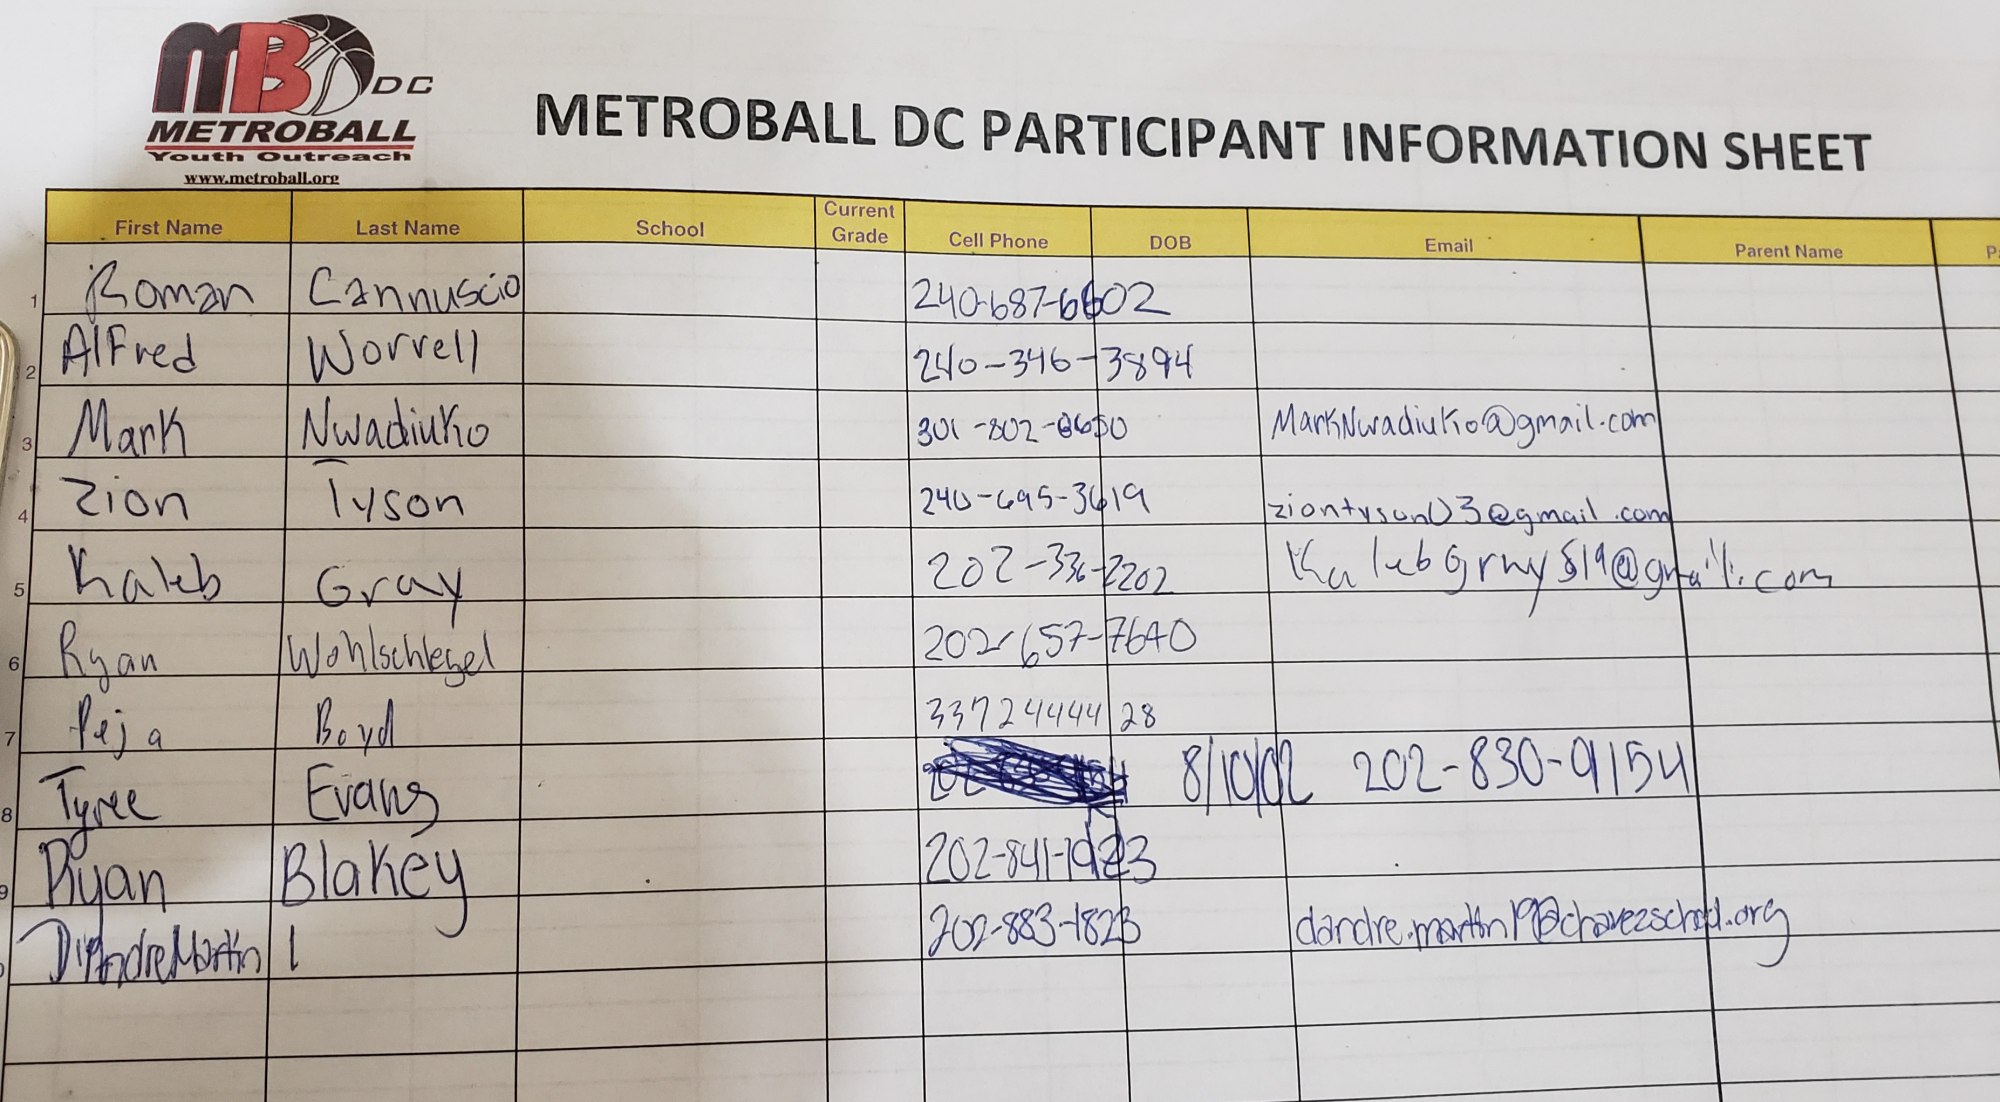 MB DC
METROBALL
Youth Outreach
www.metroball.org
METROBALL DC PARTICIPANT INFORMATION SHEET
First Name Last Name School Current Grade Cell Phone DOB Email Parent Name
1 Roman Cannuscio 240-687-6602
2 AlFred Worrell 240-346-3894
3 Mark Nwadiuko 301-802-0650 MarkNwadiuko@gmail.com
4 Zion Tyson 240-695-3619 ziontyson03@gmail.com
5 Kaleb Gray 202-336-2202 KalebGray819@gmail.com
6 Ryan Wohlschlegel 202-657-7640
7 Peja Boyd 3372444428
8 Tyree Evans 8/10/02 202-830-9154
9 Ryan Blakey 202-841-1923
DiAndre Martin 202-883-1823 dandre.martin19@chavezschool.org